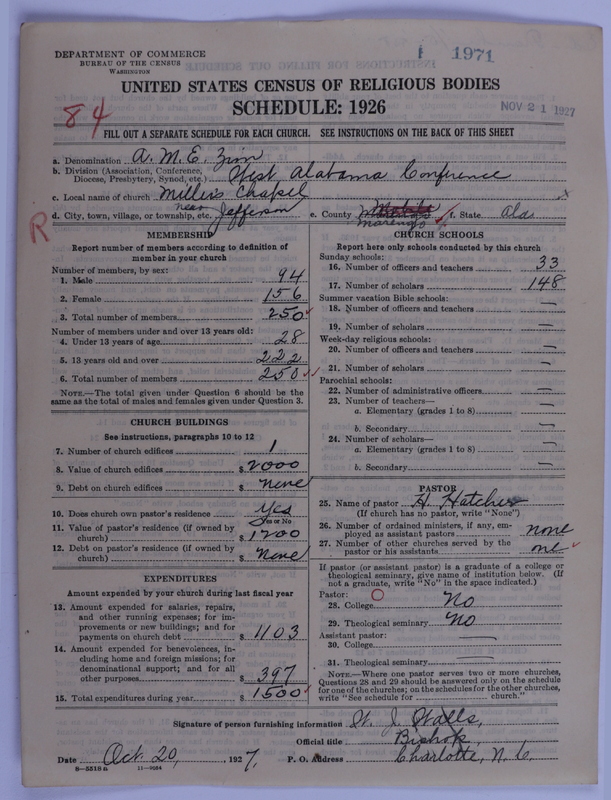 DEPARTMENT OF COMMERCE
BUREAU OF THE CENSUS
WASHINGTON
1971
UNITED STATES CENSUS OF RELIGIOUS BODIES
SCHEDULE: 1926
NOV 21 1927
84
FILL OUT A SEPARATE SCHEDULE FOR EACH CHURCH. SEE INSTRUCTIONS ON THE BACK OF THIS SHEET
a. Denomination A. M. E. Zion
b. Division (Association, Conference, Diocese, Presbytery, Synod, etc.) West Alabama Conference
c. Local name of church Miller's Chapel
d. City, town, village, or township, etc. near Jefferson e. County Marengo f. State Ala
R
MEMBERSHIP
Report number of members according to definition of
member in your church
Number of members, by sex:
1. Male 94
2. Female 156
3. Total number of members 250
Number of members under and over 13 years old:
4. Under 13 years of age 28
5. 13 years old and over 222
6. Total number of members 250
NOTE.—The total given under Question 6 should be
same as the total of males and females given under Question 3.
CHURCH BUILDINGS
See instructions, paragraphs 10 to 12
7. Number of church edifices 1
8. Value of church edifices $ 2000
9. Debt on church edifices $ None
10. Does church own pastor's residence Yes
Yes or No
11. Value of pastor's residence (if owned by
church) $ 1200
12. Debt on pastor's residence (if owned by
church) $ None
EXPENDITURES
Amount expended by your church during last fiscal year
13. Amount expended for salaries, repairs,
and other running expenses; for im-
provements or new buildings; and for
payments on church debt $ 1103
14. Amount expended for benevolences, in-
cluding home and foreign missions; for
denominational support; and for all
other purposes $ 397
15. Total expenditures during year $ 1500
CHURCH SCHOOLS
Report here only schools conducted by this church
Sunday schools:
16. Number of officers and teachers 33
17. Number of scholars 148
Summer vacation Bible schools:
18. Number of officers and teachers —
19. Number of scholars —
Week-day religious schools:
20. Number of officers and teachers —
21. Number of scholars —
Parochial schools:
22. Number of administrative officers —
23. Number of teachers—
a. Elementary (grades 1 to 8) —
b. Secondary —
24. Number of scholars—
a. Elementary (grades 1 to 8) —
b. Secondary —
PASTOR
25. Name of pastor H. Hatcher
(If church has no pastor, write "None")
26. Number of ordained ministers, if any, em-
ployed as assistant pastors none
27. Number of other churches served by the
pastor or his assistants one
If pastor (or assistant pastor) is a graduate of a college or
theological seminary, give name of institution below. (If
not a graduate, write "No" in the space indicated.)
Pastor:
28. College No
29. Theological seminary No
Assistant pastor:
30. College —
31. Theological seminary —
NOTE.—Where one pastor serves two or more churches,
Questions 28 and 29 should be answered only on the schedule
for one of the churches; on the schedules for the other churches,
write "See schedule for church."
Signature of person furnishing information W. J. Walls,
Official title Bishop
Date Oct. 20, 1927, P. O. Address Charlotte, N. C.
8—5518a 11—9684